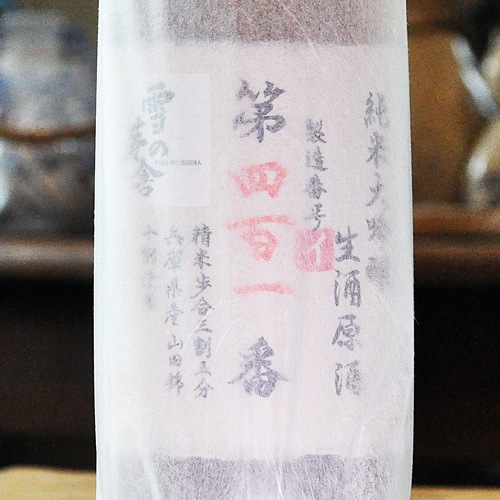 純米大吟醸
生酒原酒
製造番号
イ
第四百一番
精米歩合三割五分
兵庫県産山田錦
雪の茅舎